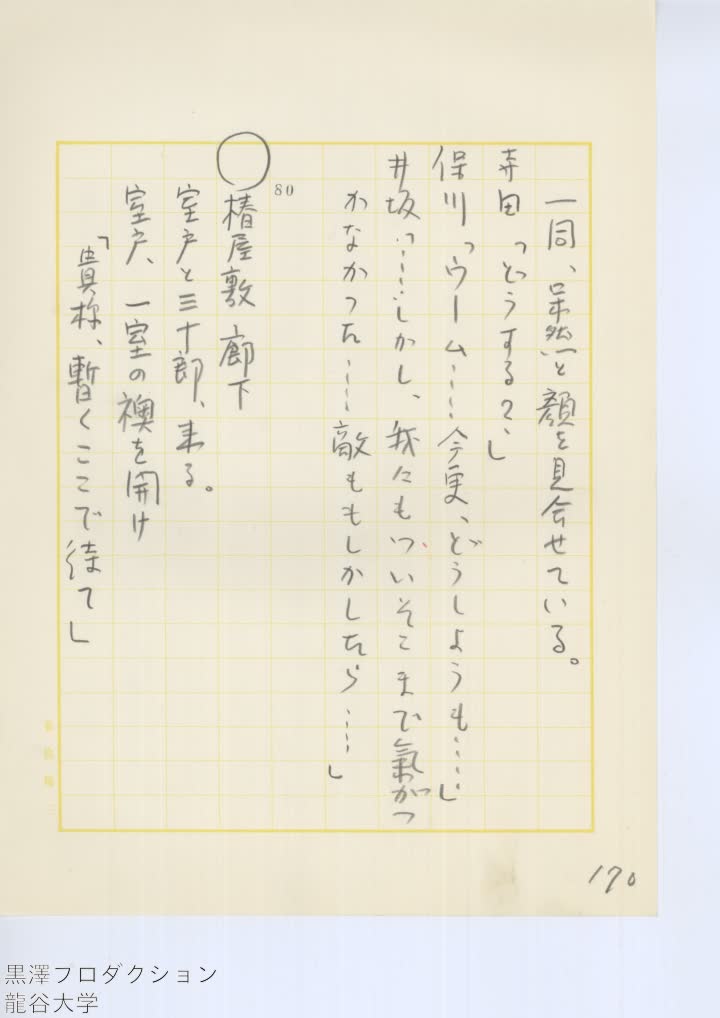 一同、呆然と顔を見合せている。
寺田「どうする?」
保川「ウーム……今更、どうしようも……」
井坂「……しかし、我々もついそこまで氣がつ
かなかった……敵ももしかしたら……」
○椿屋敷 廊下
室戸と三十郎、来る。
室戸、一室の襖を開け
「貴様、暫くここで待て」
80
170
黒澤プロダクション
龍谷大学